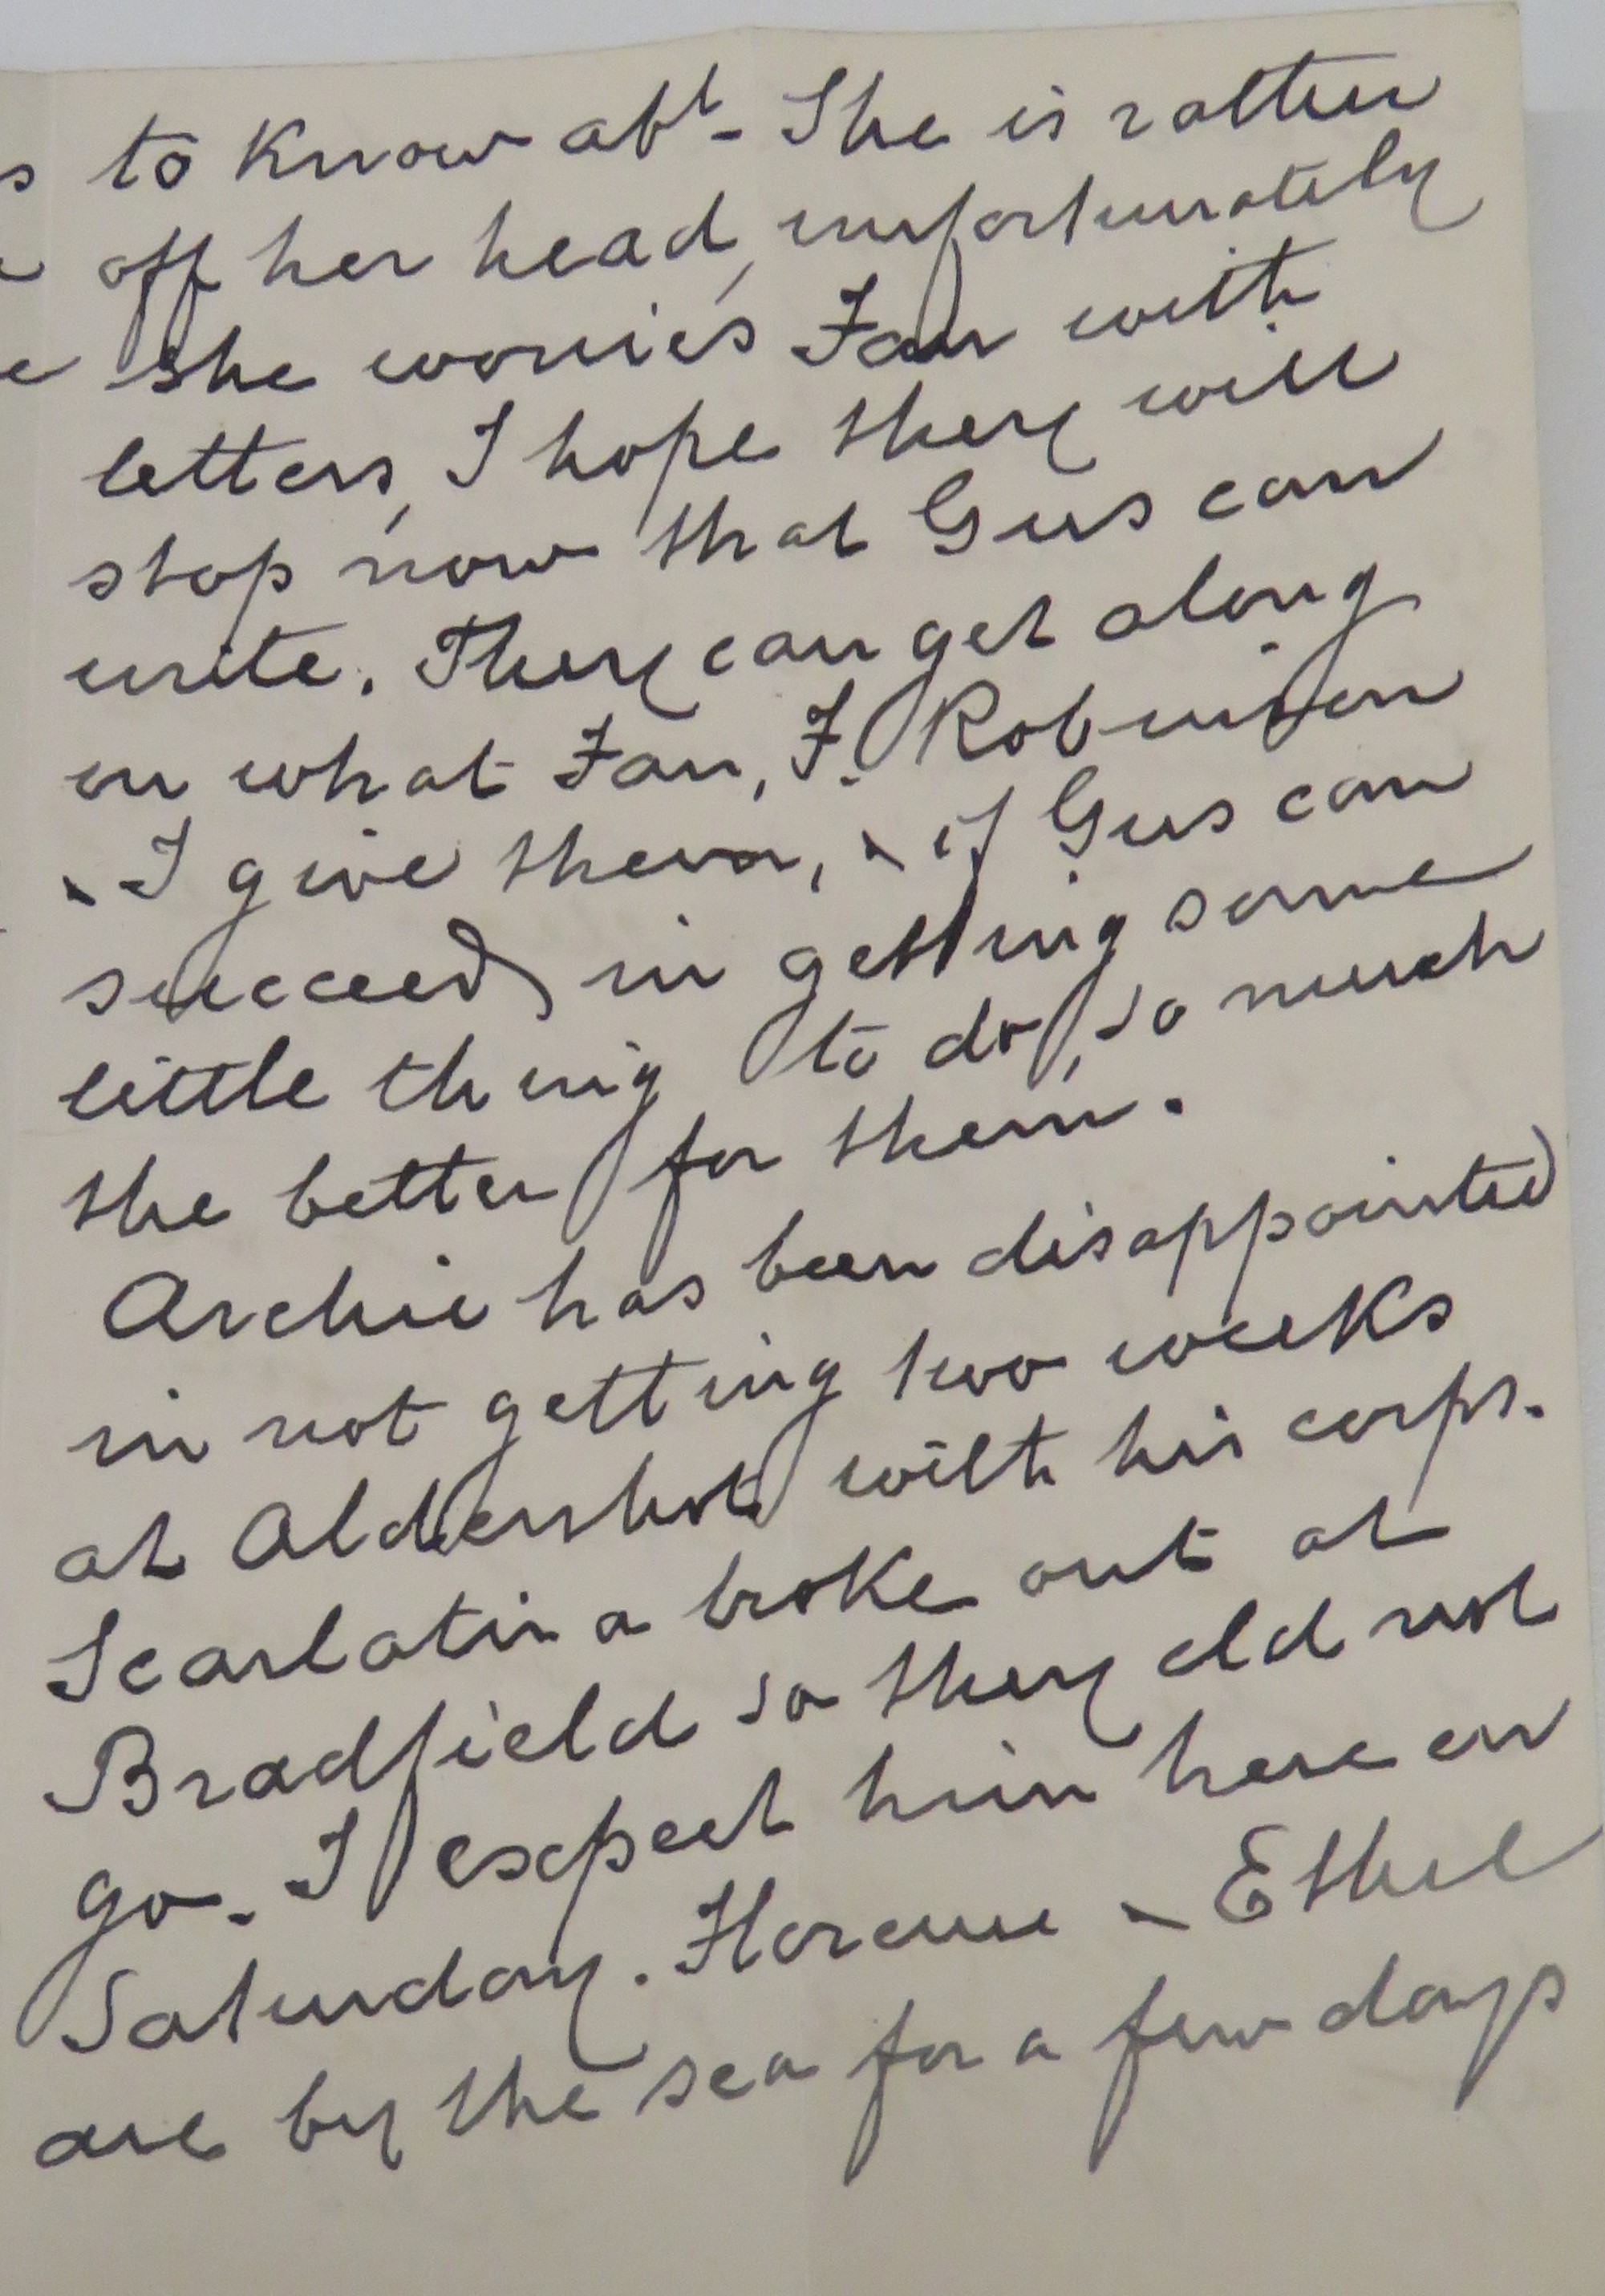 to know abt - She is rather
off her head, unfortunately
she worries Fan with
letters, I hope they will
stop now that Gus can
write. They can get along
on what Fan, F. Robinson
& I give them, & if Gus can
succeed in getting some
little thing to do, so much
the better for them.
Archie has been disappointed
in not getting two weeks
at Aldershot with his corps.
Scarlatina broke out at
Bradfield so they cld not
go. I expect him here on
Saturday. Florence & Ethel
are by the sea for a few days